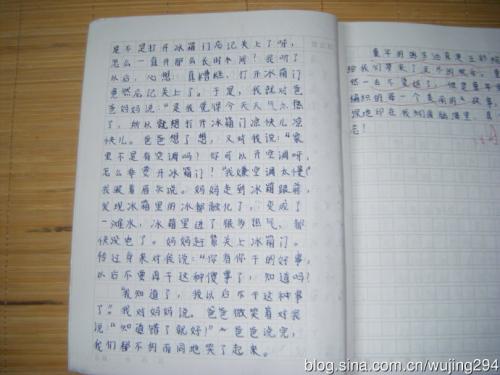 是不是打开冰箱门忘记关上了呀,
怎么一直开那么长时间?我听了
以后,心想:真糟糕,打开冰箱门
竟然忘记关上了。于是,我就对爸
爸妈妈说:“是我觉得今天天气太热
了,所以就想打开冰箱门凉快儿凉
快儿。爸爸想了想,又对我说:“家
里不是有空调吗?你可以开空调呀,
怎么非要开冰箱门?”“我嫌空调太慢”
我皱着眉头说。妈妈走到冰箱跟前,
发现冰箱里的冰都融化了,变成了
一滩水,冰箱里进了很多热气,都
快没电了。妈妈赶紧关上冰箱门。
转过身来对我说:“你看你干的好事,
以后不要再干这种傻事了,知道吗?
“我知道了,我以后不干这种事
了”。我对妈妈说。爸爸微笑着对我
说:“知道错了就好!”~爸爸说完,
我们都不约而同地笑了起来。
童年的
给我们带来了
然一去不
编织的每一个
深地印在我
忆!
blog.sina.com.cn/wujing294